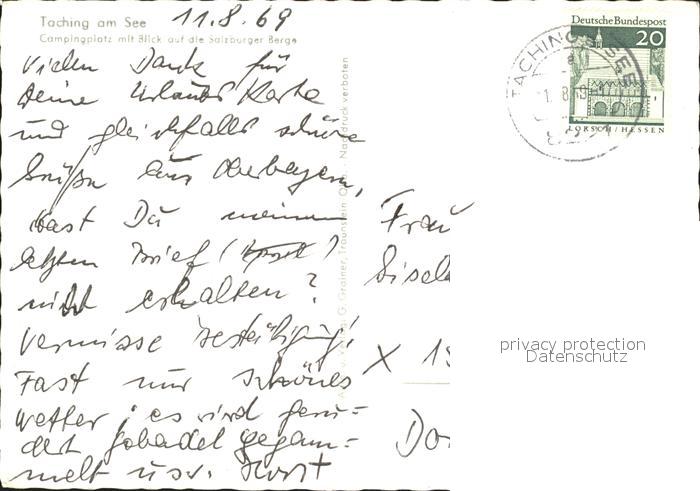 Taching am See 11.8.69
Campingplatz mit Blick auf die Salzburger Berge
Vielen Dank für
Deine Urlaubs Karte
und gleichfalls schöne
Grüße aus Oberbayern,
hast Du meinen
letzten Brief ( )
nicht erhalten?
Vermisse Bestätigung!
Fast nur schönes
Wetter, es wird geru=
dert gebadet gegam=
melt usw. Horst
Nachdruck verboten
G. Grainer, Traunstein Obb.
Deutsche Bundespost
20
LORSCH/HESSEN
TACHING A. SEE
Frau
Gisel
X 19
Do
privacy protection
Datenschutz